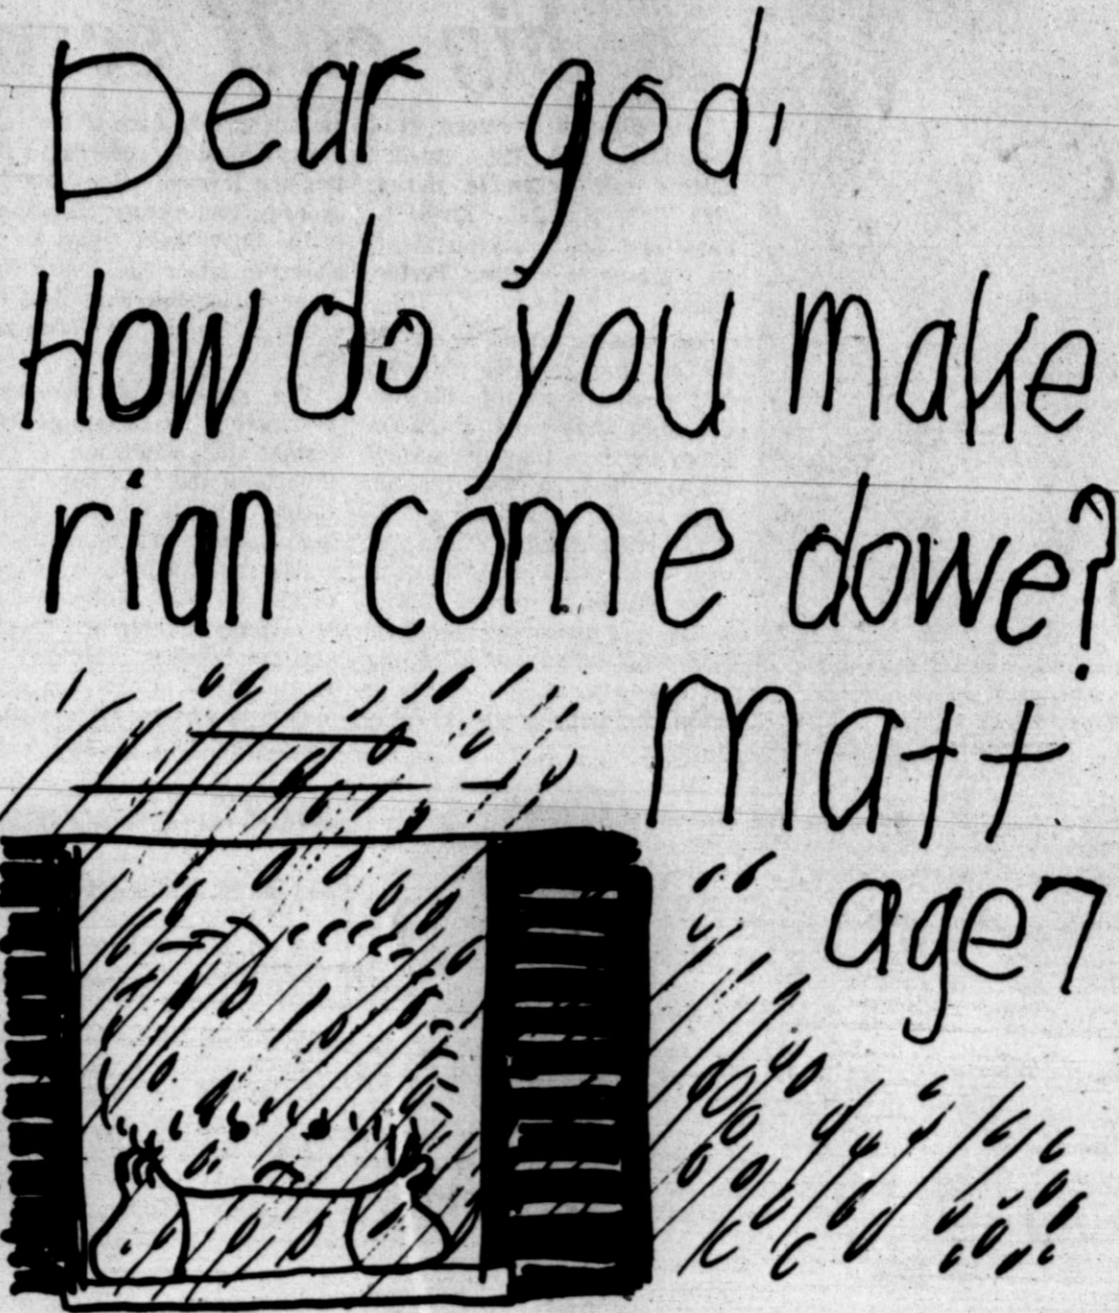 Dear god,
How do you make
rian come dowe?
Matt
age 7